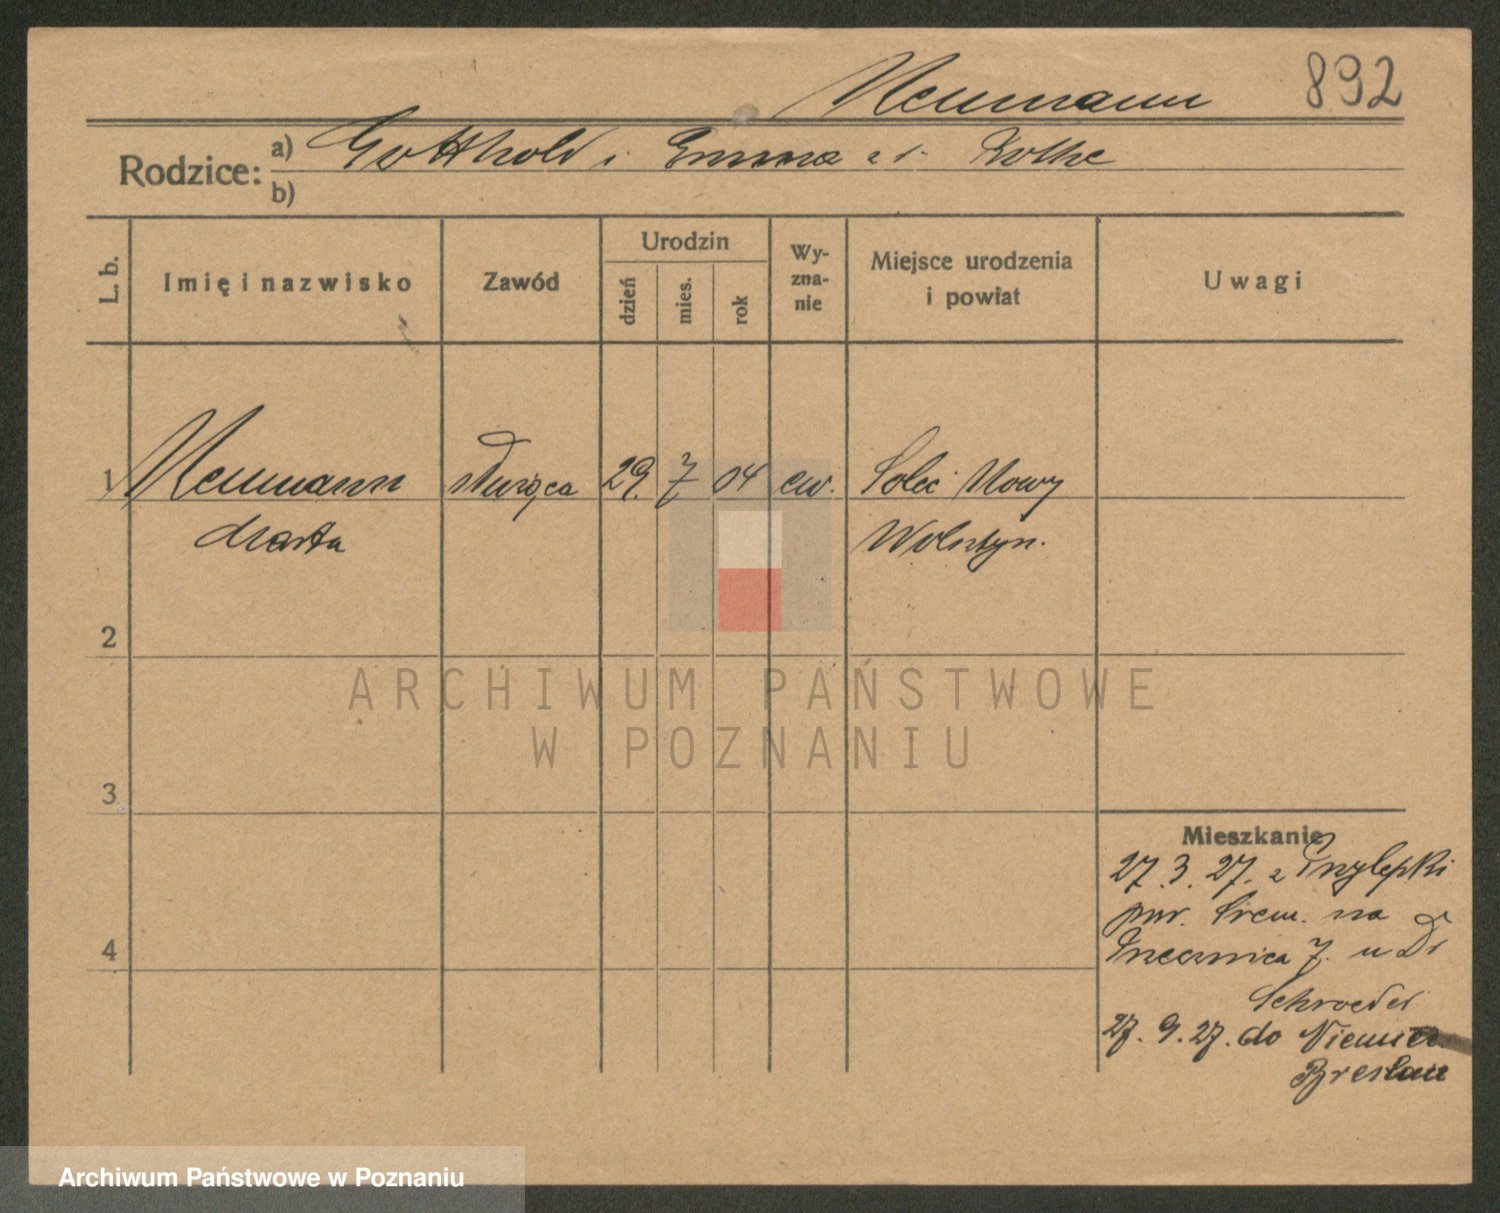 892
Neumann
Rodzice: a) Gotthold i Emma z d.
b)
L. b. Imię i nazwisko Zawód Urodzin dzień mies. rok Wyznanie Miejsce urodzenia i powiat Uwagi
1 Neumann służąca 29. 7 04 ew. Solec Nowy
Marta Wolsztyn.
2
ARCHIWUM PAŃSTWOWE
W POZNANIU
3
Mieszkanie
27. 3. 27. z Przylepki
pow. Śrem. na
7. u Dr
4
Schroeder
27. 9. 27. do Niemiec
Breslau
Archiwum Państwowe w Poznaniu